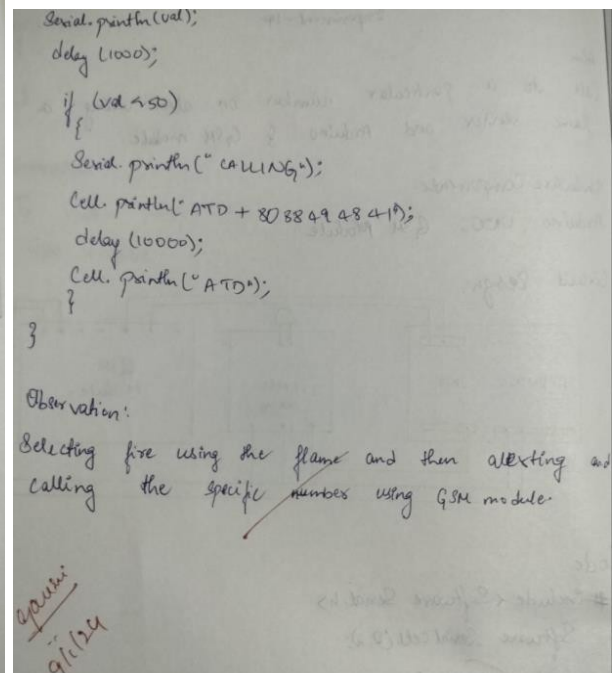 Serial.println(val);
delay (1000);
if (val <50)
{
Serial.println(" CALLING");
Cell.println("ATD + 8088494841");
delay (10000);
Cell.println("ATD");
}
}
Observation:
Selecting fire using the flame and then alerting and
calling the specific number using GSM module.
9/1/24